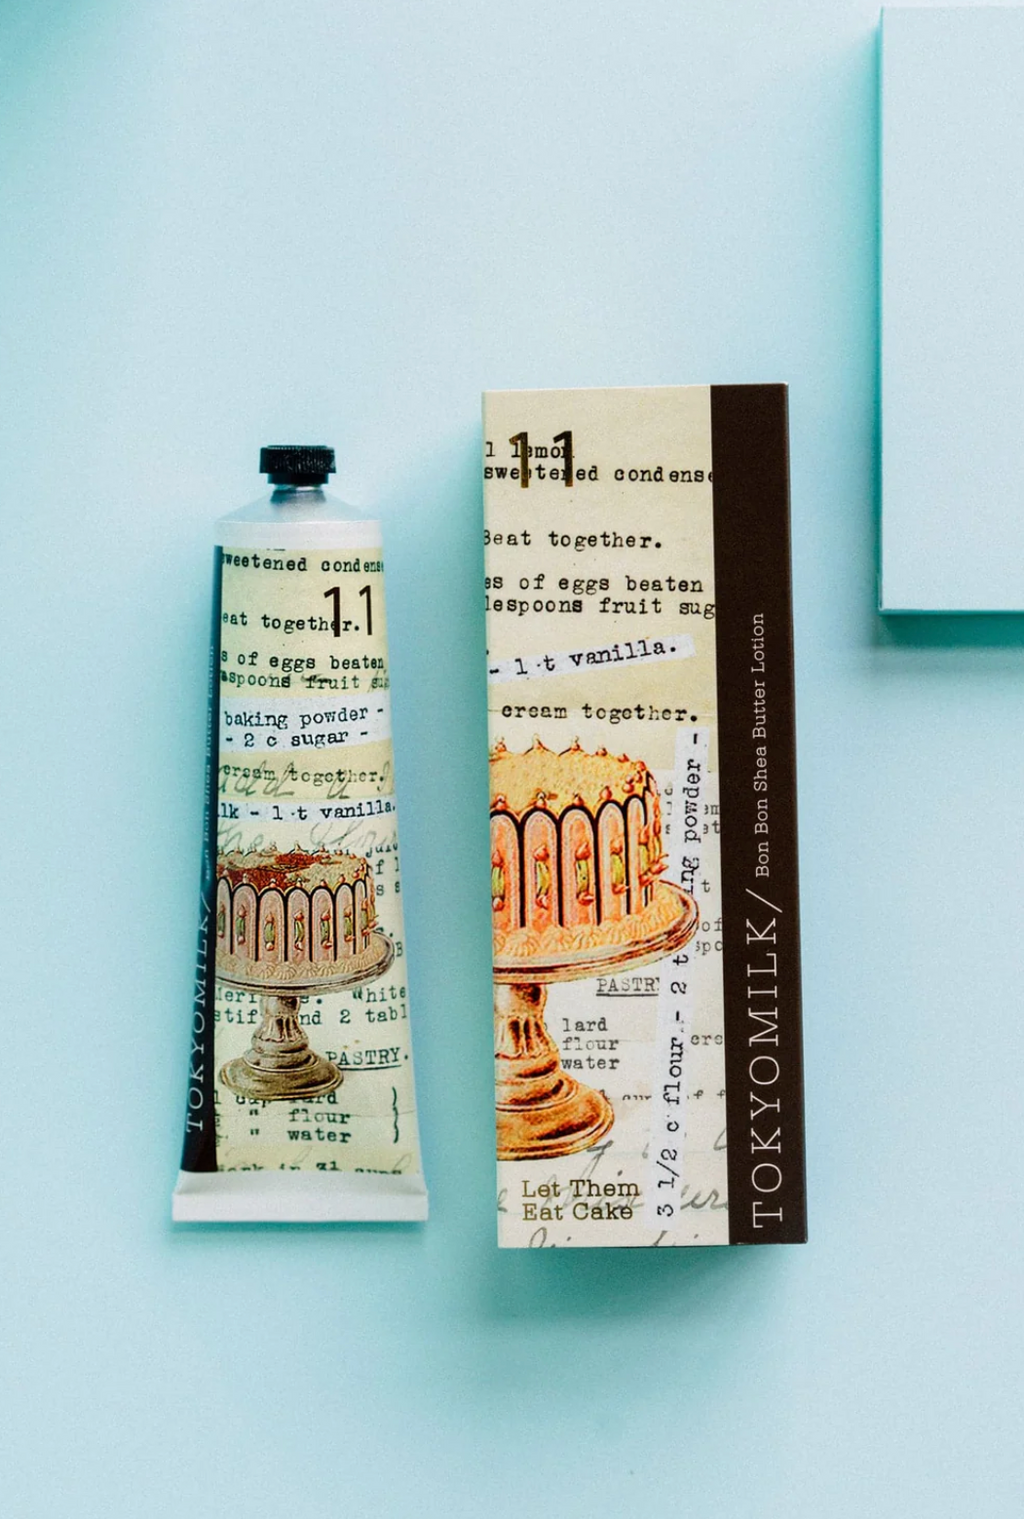 sweetened condense
11
eat together.
s of eggs beaten
spoons fruit su
baking powder -
- 2 c sugar -
cream together.
lk - 1 t vanilla.
White
nd 2 tabl
PASTRY.
flour
" water
TOKYOMILK/ Bon Bon Shea Butter Lotion
11
1 lemon
sweetened condense
Beat together.
es of eggs beaten
lespoons fruit sug
- 1 t vanilla.
cream together.
PASTRY
lard
flour
water
3 1/2 c flour - 2 t ing powder -
Let Them
Eat Cake
TOKYOMILK/ Bon Bon Shea Butter Lotion